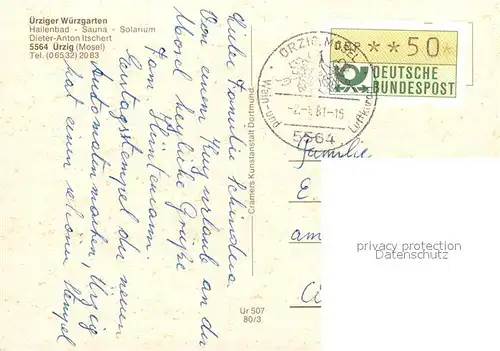 Ürziger Würzgarten
Hallenbad - Sauna - Solarium
Dieter-Anton Itschert
5564 Ürzig (Mosel)
Tel. (06532) 2083
Liebe Familie
Von einem Kurzurlaub an der
Mosel herzliche Grüße
Fam.
Ersttagstempel der neuen
Automatenmarken, Ürzig
hat einen schönen Stempel
Cramers Kunstanstalt Dortmund
Ür 507
80/3
ÜRZIG, MOSEL
-2.-1.81-15
5564
Wein- und
Luftkurort
DBP **50*
DEUTSCHE
BUNDESPOST
Familie
E.
am
privacy protection
Datenschutz